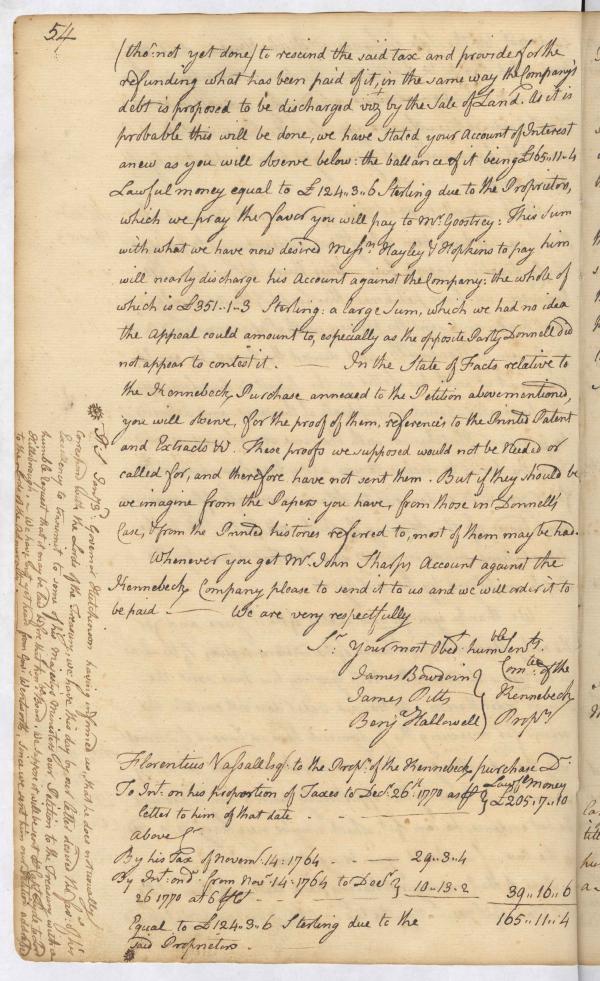 54
(tho' not yet done) to rescind the said tax and provide for the
refunding what has been paid of it, in the same way the Company's
debt is proposed to be discharged viz by the Sale of Land. As it is
probable this will be done, we have Stated your Account of Interest
anew as you will observe below: the ballance of it being £165..11..4
Lawful money equal to £124..3..6 Sterling due to the Proprietors,
which we pray the favor you will pay to Mr. Goostrey: This Sum
with what we have now desired Messrs. Hayley & Hopkins to pay him
will nearly discharge his Account against the Company: the whole of
which is £351..1..3 Sterling: a large Sum, which we had no idea
the Appeal could amount to, especially as the opposite Party Donnell did
not appear to contest it. — In the State of Facts relative to
the Kennebeck Purchase annexed to the Petition abovementioned,
you will observe, for the proof of them, references to the Printed Patent
and Extracts &c. These proofs we supposed would not be needed or
called for, and therefore have not sent them. But if they should be
we imagine from the Papers you have, from those in Donnell's
Case, & from the Printed histories referred to, most of them may be had.
Whenever you get Mr. John Sharps Account against the
Kennebeck Company please to send it to us and we will order it to
be paid — We are very respectfully
Sr. Your most Obedt. humble Servts.
James Bowdoin
James Pitts
Benjn. Hallowell
Comtee. of the
Kennebeck
Proprs.
Florentius Vassall Esqr. to the Proprs. of the Kennebeck purchase Dr.
Lawfl. Money
To Intt. on his proportion of Taxes to Decr. 26th. 1770 as pr } £205..17..10
letter to him of that date
above Cr.
By his Tax of Novemr. 14: 1764 29..3..4
By Intt. on do. from Novr. 14: 1764 to Decr. }
26 1770 at 6 pCt 10..13..2 39..16..6
Equal to £124..3..6 Sterling due to the 165..11..4
said Proprietors.
Governor Hutchinson having informed us, that he does not usually
Correspond with the Lords of the Treasury, we have this day by our letter desired the favor of his
Excellency to transmit to some of his Majesty's Ministers our Petition to the Treasury with a
humble request that it may be laid before that Board
Hillsborough. — We have not yet heard from Govr. Wentworth since we sent him our Petition
to the Lords of the Admiralty.